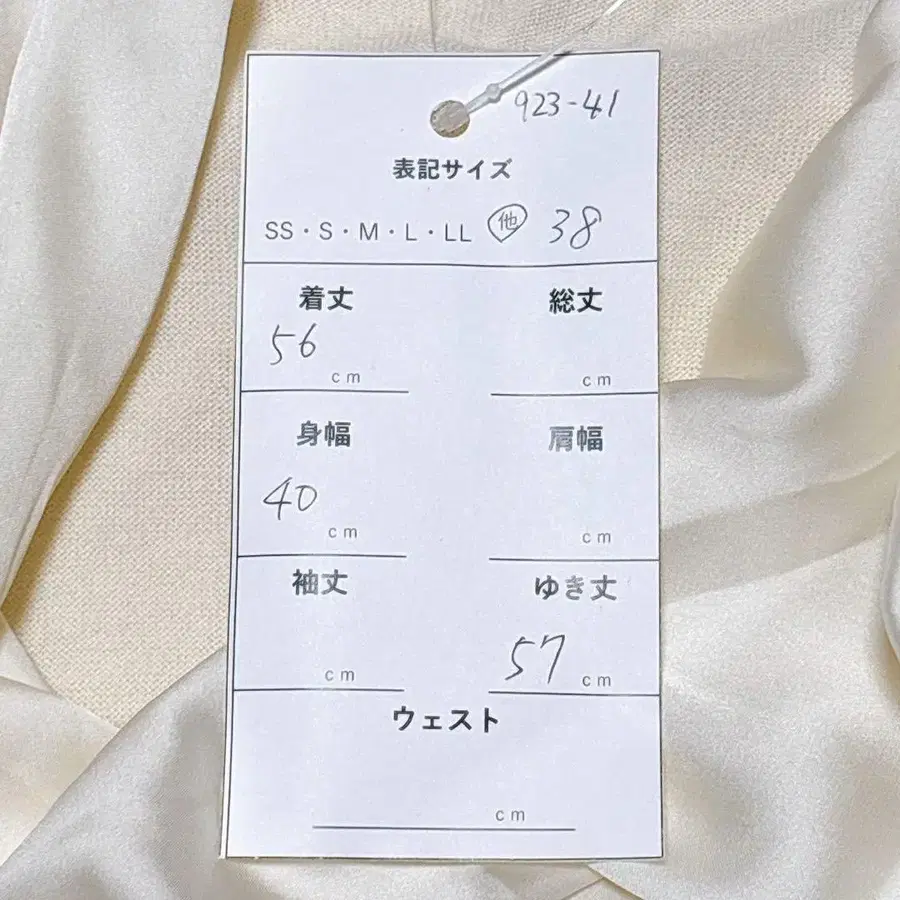 923-41
表記サイズ
SS・S・M・L・LL 他 38
着丈 総丈
56
cm cm
身幅 肩幅
40
cm cm
袖丈 ゆき丈
57
cm cm
ウェスト
cm